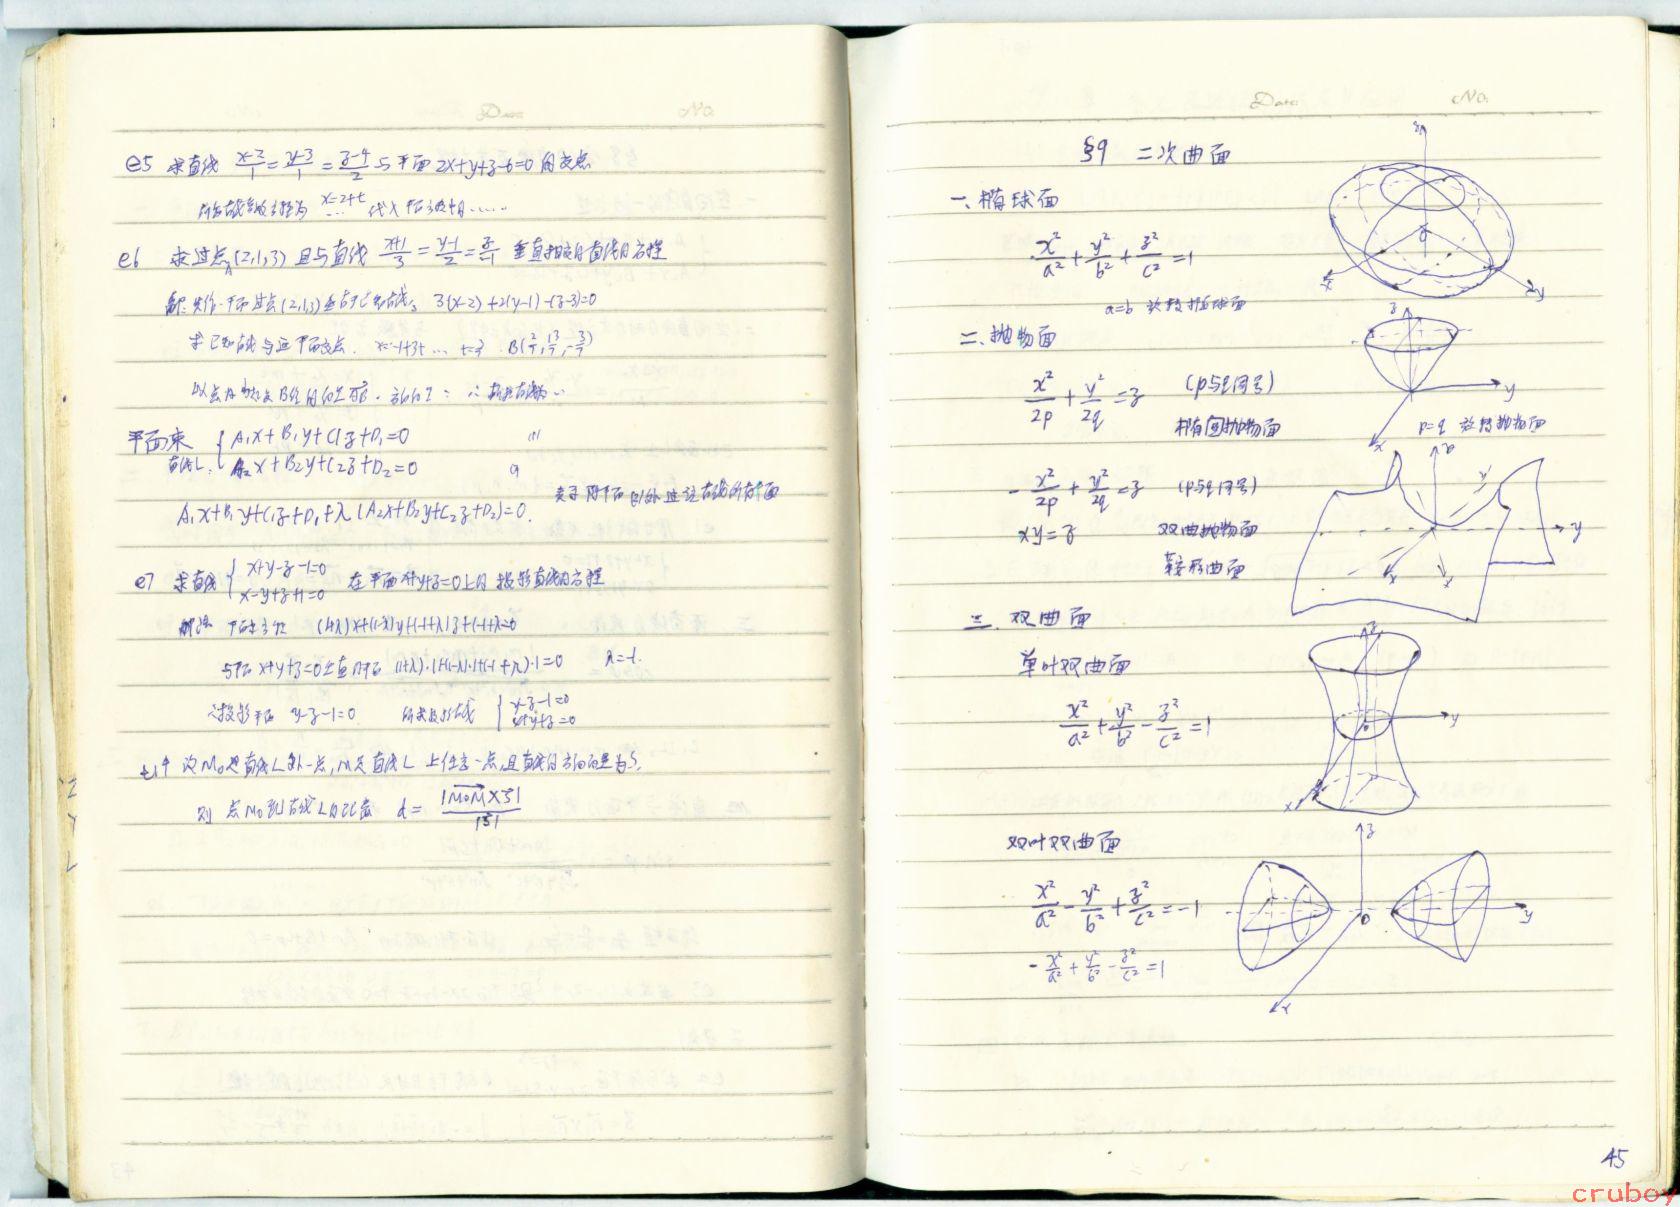 Date No.
e5 求直线 (x-2)/1 = (y-3)/1 = (z-4)/2 与平面 2x+y+z-6=0 的交点
所给直线参数方程为 x=2+t … 代入平面方程中……
e6 求过点A(2,1,3) 且与直线 (x+1)/3 = (y-1)/2 = z/-1 垂直相交的直线的方程
解: 先作一平面过点(2,1,3)垂直于已知直线, 3(x-2)+2(y-1)-(z-3)=0
求已知直线与这平面交点. x=-1+3t … t=3/7 B(2/7, 13/7, -3/7)
以点A 为起点B 为 … ∴ 所求直线为…
平面束 { A₁x+B₁y+C₁z+D₁=0
直线L: A₂x+B₂y+C₂z+D₂=0
A₁x+B₁y+C₁z+D₁+λ(A₂x+B₂y+C₂z+D₂)=0. 表示 除平面 以外 过 直线 所有平面
e7 求直线 { x+y-z-1=0 x-y+z+1=0 在平面x+y+z=0上的 投影直线的方程
解法 平面束方程 (1+λ)x+(1-λ)y+(-1+λ)z+(-1+λ)=0
与平面 x+y+z=0 垂直的平面 (1+λ)·1+(1-λ)·1+(-1+λ)·1=0 λ=-1.
∴投影平面 y-z-1=0 所求投影直线 { y-z-1=0 x+y+z=0
设M₀是直线L外一点,M是直线L 上任意一点,且直线的方向向量为s,
则 点M₀到直线L的距离 d = |M₀M×s| / |s|
Date No.
§9 二次曲面
一、椭球面
x²/a² + y²/b² + z²/c² = 1
a=b 旋转椭球面
z
o
x
y
二、抛物面
x²/2p + y²/2q = z (p与q同号)
椭圆抛物面
z
y
x
p=q 旋转抛物面
- x²/2p + y²/2q = z (p与q同号)
xy=z 双曲抛物面
鞍形曲面
y
x
三、双曲面
单叶双曲面
x²/a² + y²/b² - z²/c² = 1
z
y
o
x
双叶双曲面
x²/a² - y²/b² + z²/c² = -1
- x²/a² + y²/b² - z²/c² = 1
z
o
y
x
45
cruboy